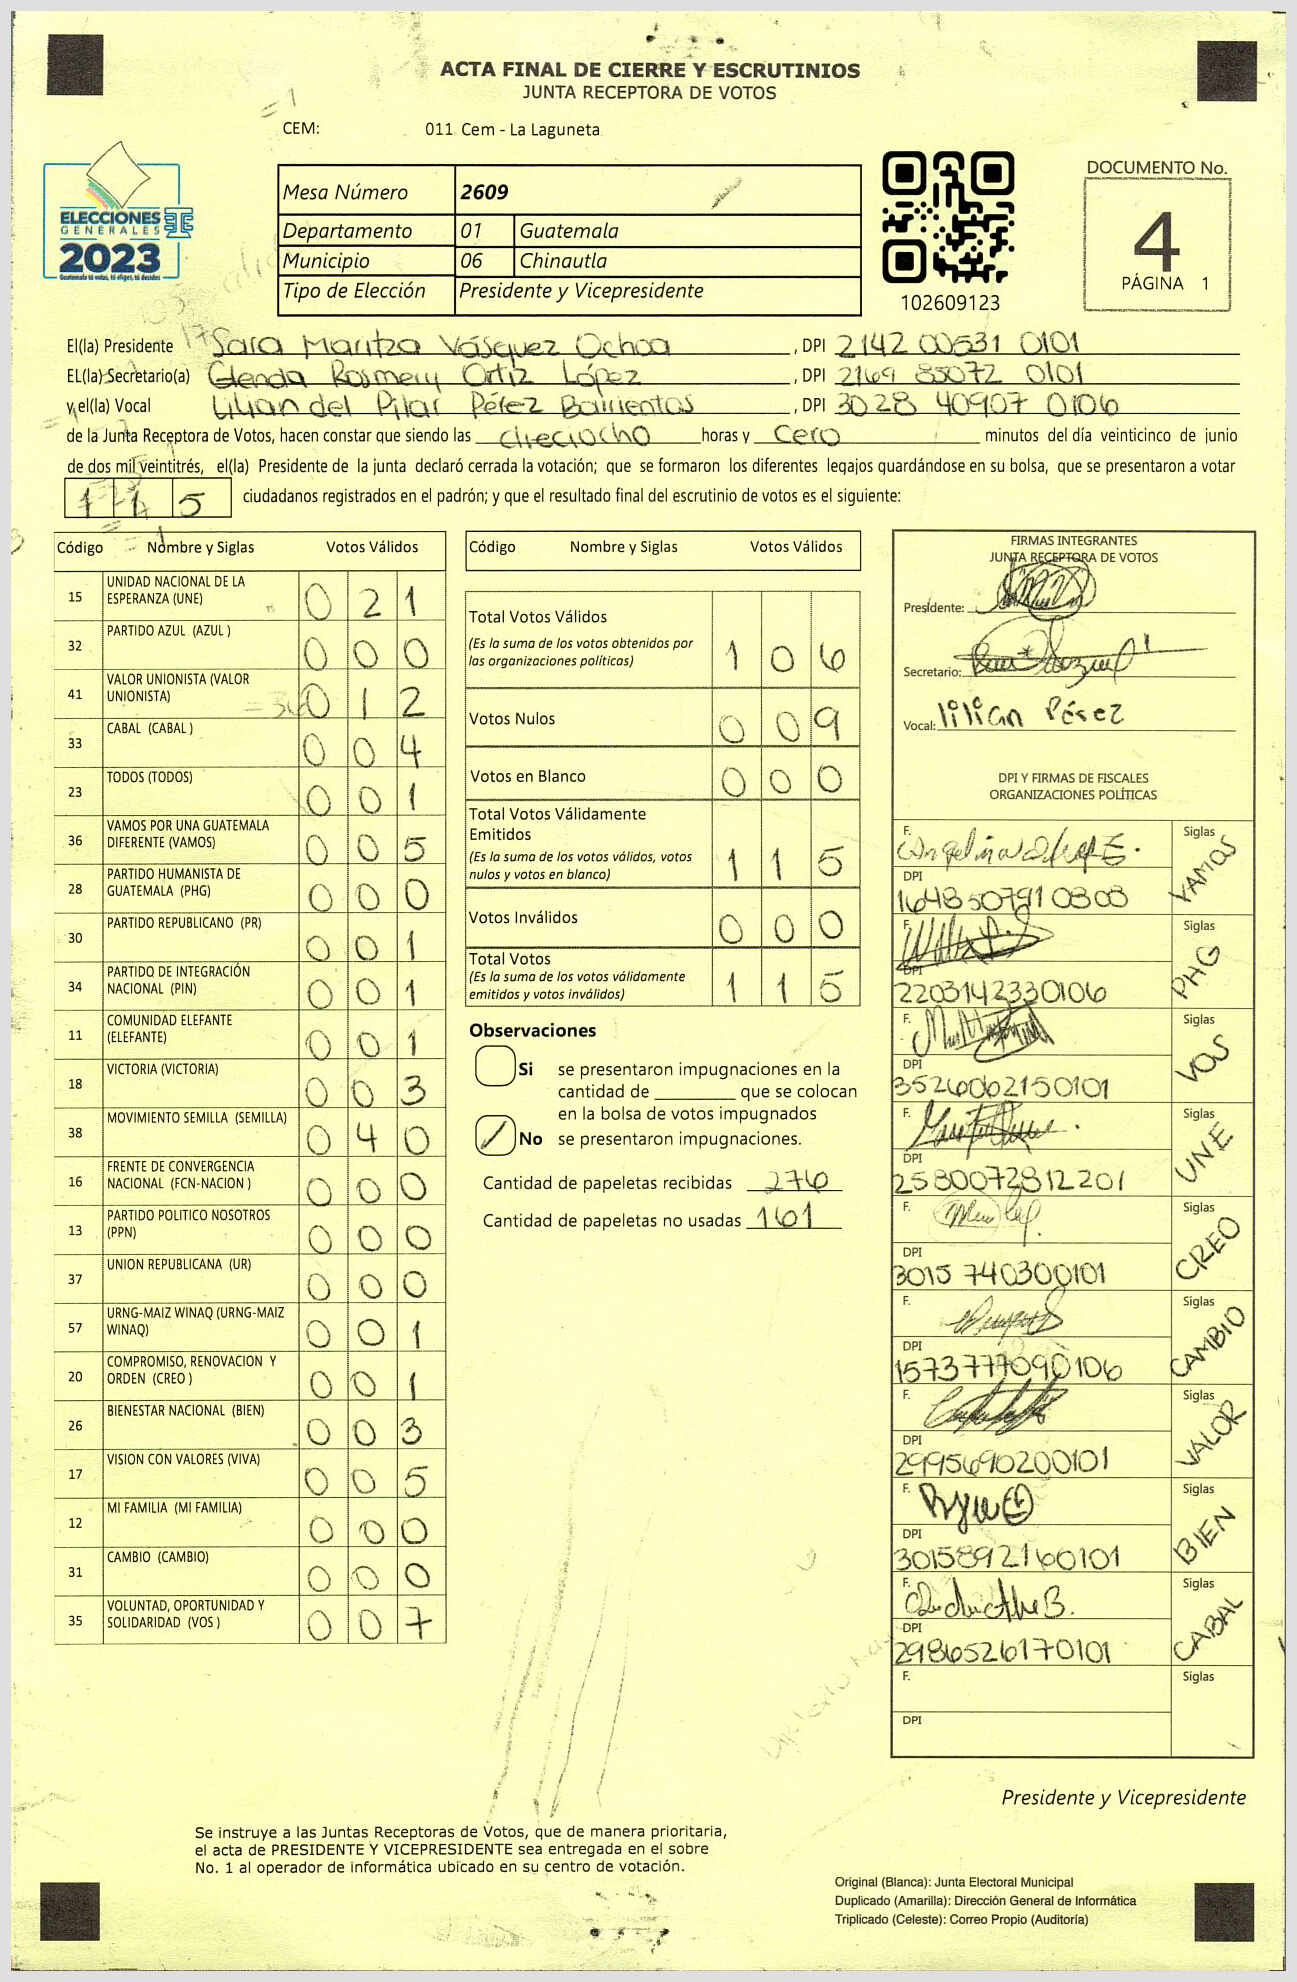 ACTA FINAL DE CIERRE Y ESCRUTINIOS
JUNTA RECEPTORA DE VOTOS
CEM: 011 Cem - La Laguneta
ELECCIONES
GENERALES
2023
Guatemala tú votas, tú eliges, tú decides
Mesa Número 2609
Departamento 01 Guatemala
Municipio 06 Chinautla
Tipo de Elección Presidente y Vicepresidente
102609123
DOCUMENTO No.
4
PÁGINA 1
El(la) Presidente Sara Maritza Vásquez Ochoa, DPI 2142 00531 0101
EL(la) Secretario(a) Glenda Rosmery Ortiz López, DPI 2169 85072 0101
y el(la) Vocal Lilian del Pilar Pérez Barrientos, DPI 3028 40907 0106
de la Junta Receptora de Votos, hacen constar que siendo las dieciocho horas y cero minutos del día veinticinco de junio
de dos mil veintitrés, el(la) Presidente de la junta declaró cerrada la votación; que se formaron los diferentes legajos quardándose en su bolsa, que se presentaron a votar
115 ciudadanos registrados en el padrón; y que el resultado final del escrutinio de votos es el siguiente:
Código Nombre y Siglas Votos Válidos
15 UNIDAD NACIONAL DE LA ESPERANZA (UNE) 0 2 1
32 PARTIDO AZUL (AZUL ) 0 0 0
41 VALOR UNIONISTA (VALOR UNIONISTA) 0 1 2
33 CABAL (CABAL ) 0 0 4
23 TODOS (TODOS) 0 0 1
36 VAMOS POR UNA GUATEMALA DIFERENTE (VAMOS) 0 0 5
28 PARTIDO HUMANISTA DE GUATEMALA (PHG) 0 0 0
30 PARTIDO REPUBLICANO (PR) 0 0 1
34 PARTIDO DE INTEGRACIÓN NACIONAL (PIN) 0 0 1
11 COMUNIDAD ELEFANTE (ELEFANTE) 0 0 1
18 VICTORIA (VICTORIA) 0 0 3
38 MOVIMIENTO SEMILLA (SEMILLA) 0 4 0
16 FRENTE DE CONVERGENCIA NACIONAL (FCN-NACION ) 0 0 0
13 PARTIDO POLITICO NOSOTROS (PPN) 0 0 0
37 UNION REPUBLICANA (UR) 0 0 0
57 URNG-MAIZ WINAQ (URNG-MAIZ WINAQ) 0 0 1
20 COMPROMISO, RENOVACION Y ORDEN (CREO ) 0 0 1
26 BIENESTAR NACIONAL (BIEN) 0 0 3
17 VISION CON VALORES (VIVA) 0 0 5
12 MI FAMILIA (MI FAMILIA) 0 0 0
31 CAMBIO (CAMBIO) 0 0 0
35 VOLUNTAD, OPORTUNIDAD Y SOLIDARIDAD (VOS ) 0 0 7
Código Nombre y Siglas Votos Válidos
Total Votos Válidos 1 0 6
(Es la suma de los votos obtenidos por
las organizaciones políticas)
Votos Nulos 0 0 9
Votos en Blanco 0 0 0
Total Votos Válidamente
Emitidos 1 1 5
(Es la suma de los votos válidos, votos
nulos y votos en blanco)
Votos Inválidos 0 0 0
Total Votos 1 1 5
(Es la suma de los votos válidamente
emitidos y votos inválidos)
Observaciones
Si se presentaron impugnaciones en la
cantidad de ________ que se colocan
en la bolsa de votos impugnados
No se presentaron impugnaciones.
Cantidad de papeletas recibidas 276
Cantidad de papeletas no usadas 161
FIRMAS INTEGRANTES
JUNTA RECEPTORA DE VOTOS
Presidente:
Secretario:
Vocal: lilian Pérez
DPI Y FIRMAS DE FISCALES
ORGANIZACIONES POLÍTICAS
F. Siglas VAMOS
DPI 1648507910808
F. Siglas PHG
DPI 2203142330106
F. Siglas VOS
DPI 3526062150101
F. Siglas UNE
DPI 2580072812201
F. Siglas CREO
DPI 3015 740300101
F. Siglas CAMBIO
DPI 1573777090106
F. Siglas VALOR
DPI 2995690200101
F. Siglas BIEN
DPI 3015892160101
F. Siglas CABAL
DPI 2986526170101
F. Siglas
DPI
Presidente y Vicepresidente
Se instruye a las Juntas Receptoras de Votos, que de manera prioritaria,
el acta de PRESIDENTE Y VICEPRESIDENTE sea entregada en el sobre
No. 1 al operador de informática ubicado en su centro de votación.
Original (Blanca): Junta Electoral Municipal
Duplicado (Amarilla): Dirección General de Informática
Triplicado (Celeste): Correo Propio (Auditoría)